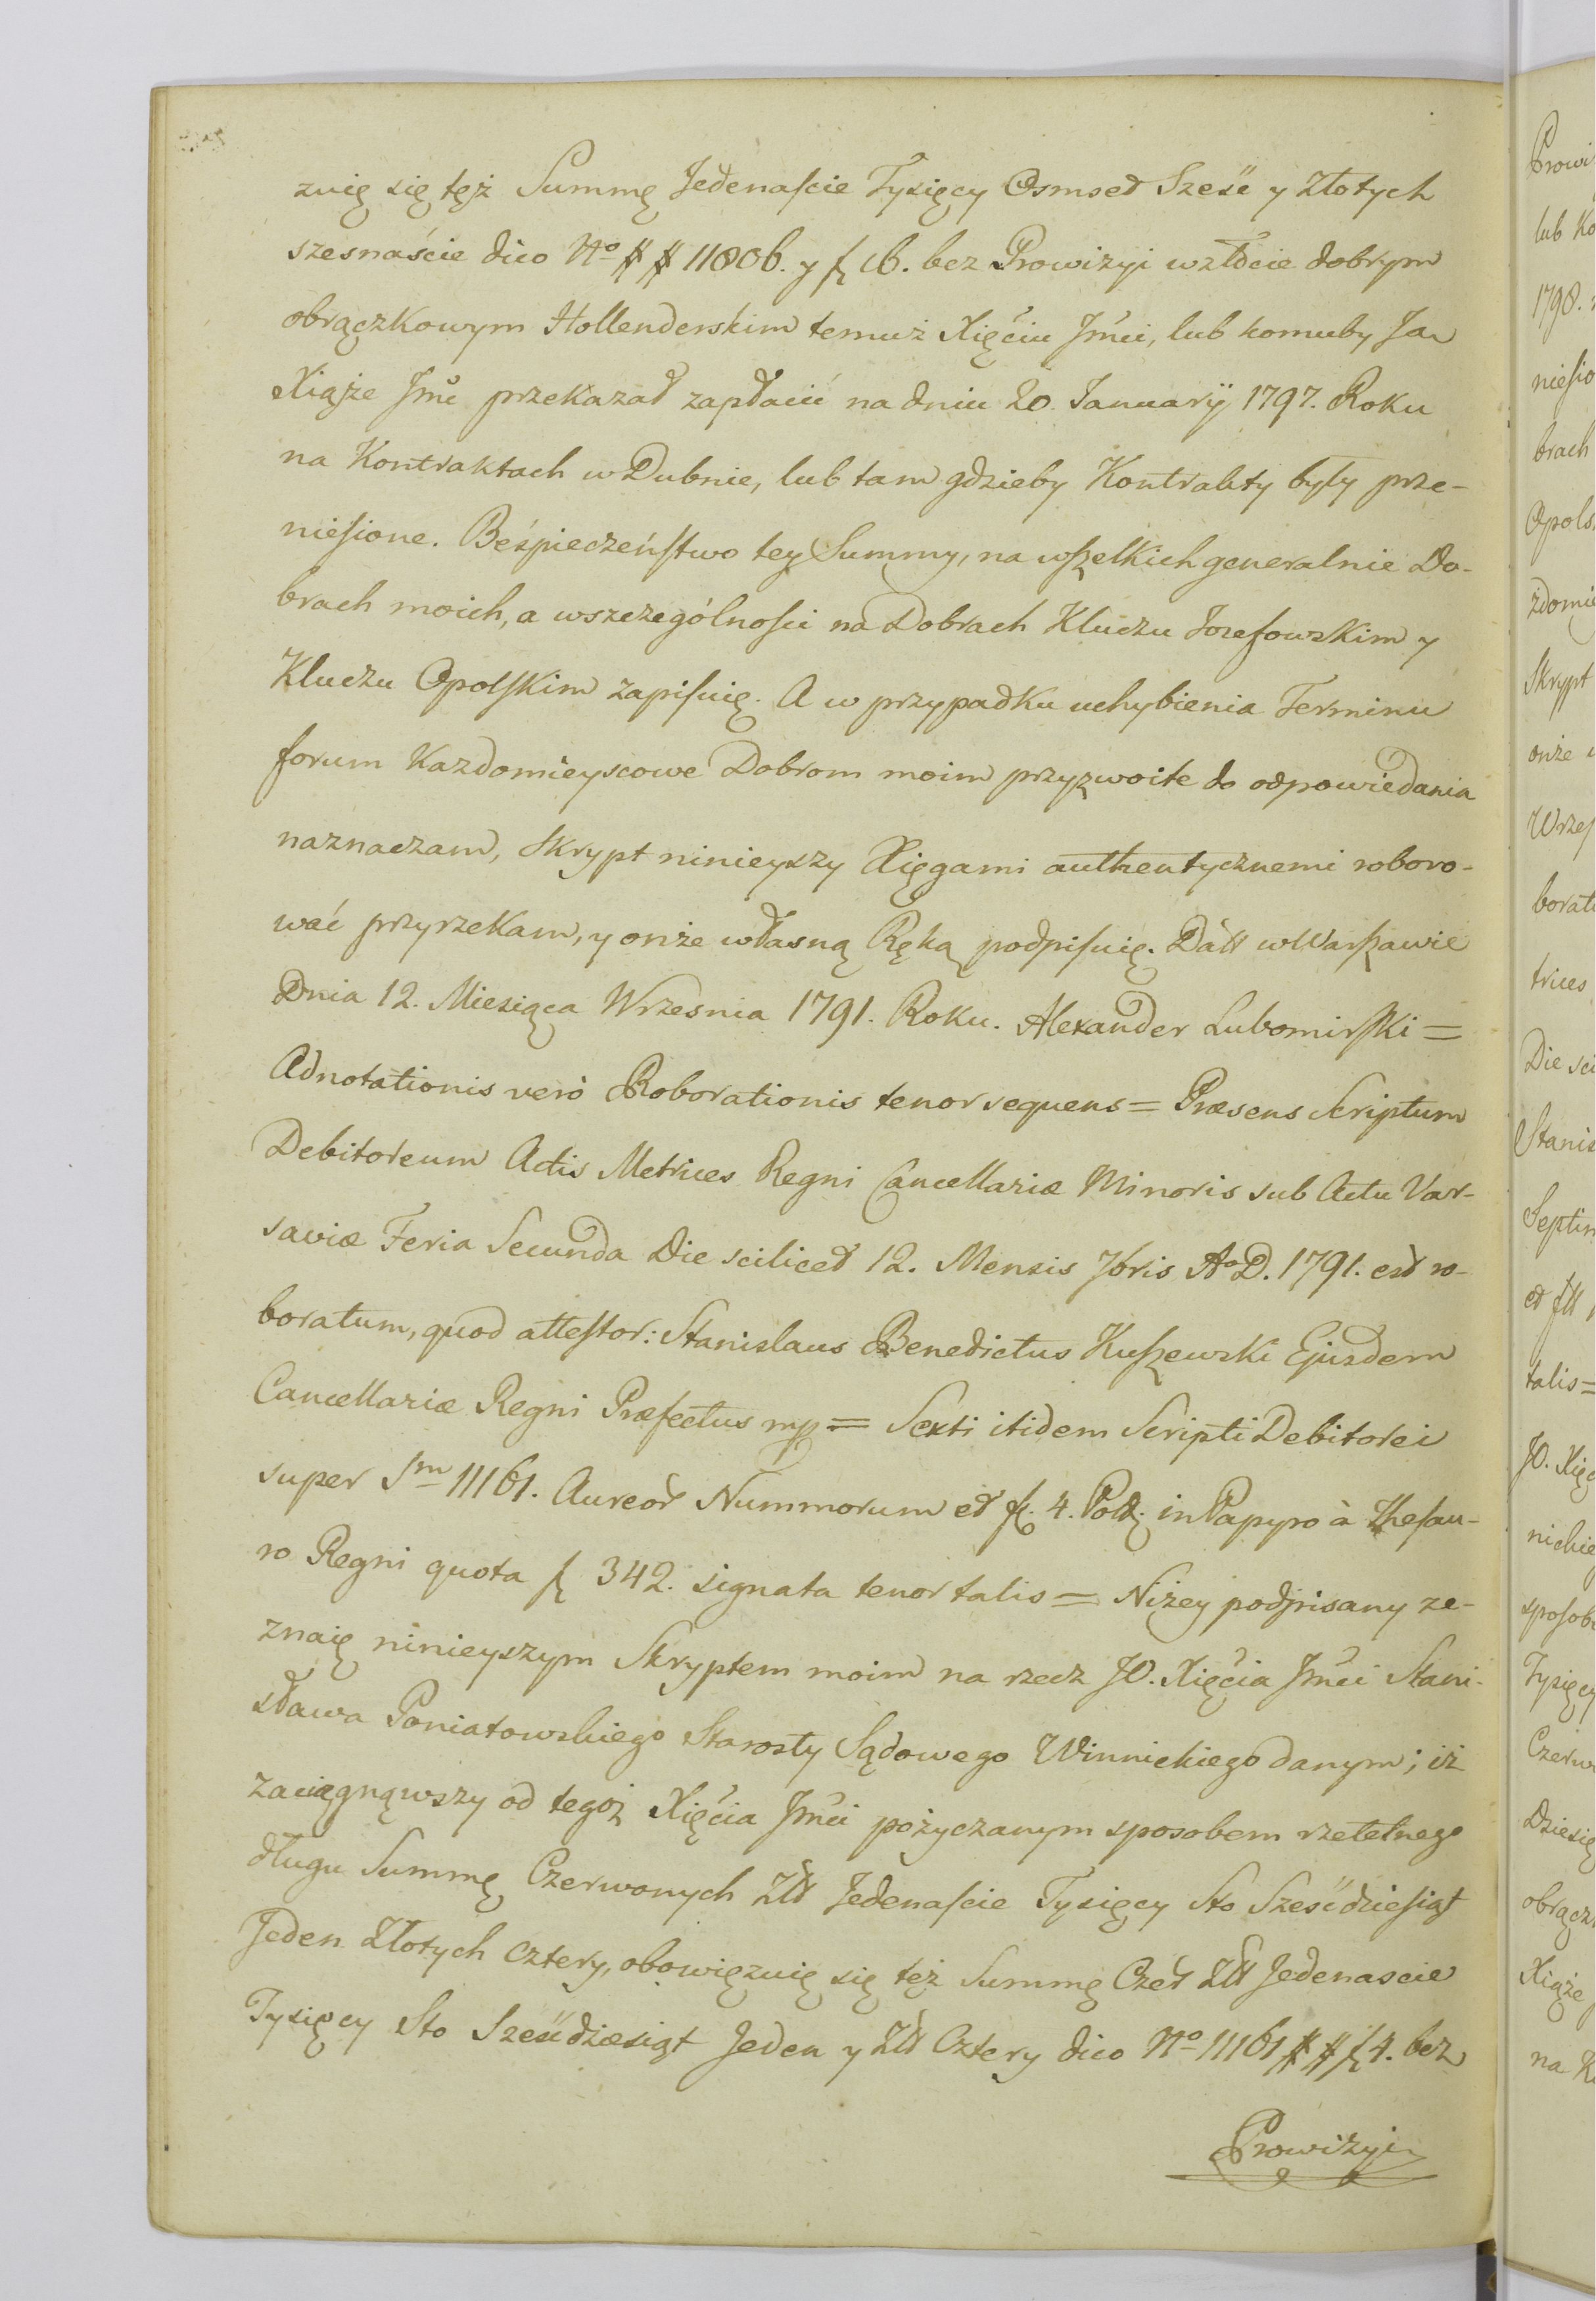 zuię się tęż Summę Jedenaście Tysięcy Osmset Sześć y Złotych
szesnaście dico No ## 11806. y f 16. bez Prowizyi wzłocie dobrym
obrączkowym Hollenderskim temuż Xięciu Jmći, lub komuby Ja
Xiąże Jmć przekazał zapłacić na dniu 20. Januarÿ 1797. Roku
na Kontraktach w Dubnie, lub tam gdzieby Kontrakty były prze-
niesione. Beśpieczeństwo tey Summy, na wszelkich generalnie Do-
brach moich, a wszczególności na Dobrach Kluczu Jozefowskim y
Kluczu Opolskim zapisuię. A w przypadku uchybienia Terminu
forum każdomieyscowe Dobrom moim przyzwoite do odpowiedania
naznaczam, Skrypt ninieyszy Xięgami authentycznemi roboro-
wać przyrzekam, y onże własną Ręką podpisuię. Datt w Warszawie
Dnia 12. Miesiąca Wrzesnia 1791. Roku. Alexander Lubomirski =
Adnotationis verò Roborationis tenor sequens = Præsens Scriptum
Debitoreum Actis Metrices Regni Cancellariæ Minoris sub Actu Var-
saviæ Feria Secunda Die scilicet 12. Mensis 7bris Ao D. 1791. est ro-
boratum, quod attestor: Stanislaus Benedictus Kuszewski Ejusdem
Cancellariæ Regni Præfectus mp = Sexti itidem Scripti Debitorei
super Sm 11161. Aureor Nummorum et f. 4. Pol. in Papyro à Thesau-
ro Regni quota f 342. signata tenor talis = Niżey podpisany ze-
znaię ninieyszym Skryptem moim na rzecz JO. Xięcia Jmći Stani-
sława Poniatowskiego Starosty Sądowego Winnickiego danym; iż
zaciągnąwszy od tegoż Xięcia Jmći pożyczanym sposobem rzetelnego
długu Summę Czerwonych Złł Jedenaście Tysięcy Sto Sześćdziesiąt
Jeden Złotych cztery, obowięzuię się też Summę Czer Złł Jedenascie
Tysięcy Sto Sześćdziesiąt Jeden y Złł Cztery dico No 11161 ## f 4. bez
Prowizyi